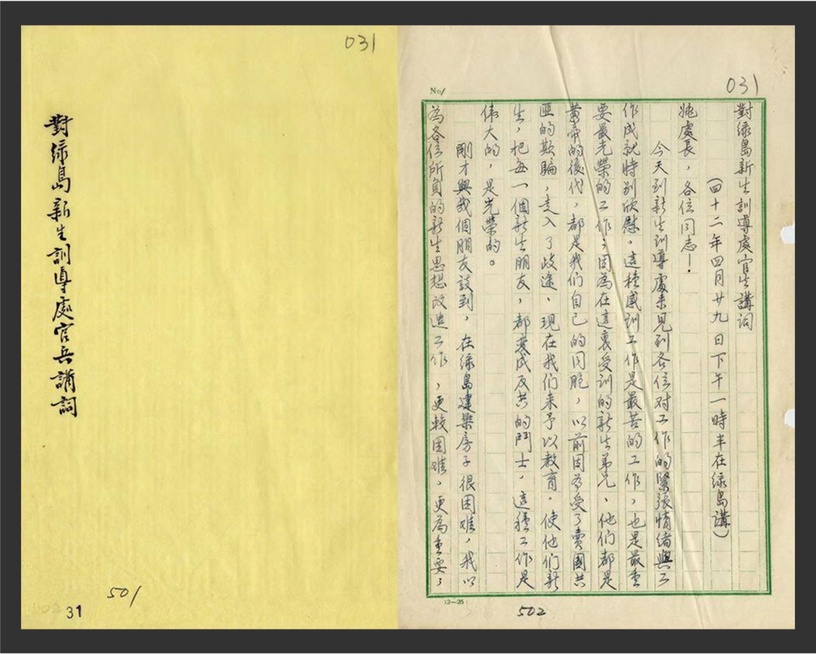 031
對綠島新生訓導處官兵講詞
501
31
No/
031
對綠島新生訓導處官生講詞
(四十二年四月廿九日下午一時半在綠島講)
姚處長,各位同志!
今天到新生訓導處來見到各位对工作的緊張情緒與工
作成就特别欣慰。這種感訓工作是最苦的工作,也是最重
要最光榮的工作,因為在這裏受訓的新生弟兄,他們都是
黃帝的後代,都是我们自己的同胞,以前因為受了賣國共
匪的欺騙,走入了歧途,現在我们来予以教育,使他們新
生,把每一個新生朋友,都變成反共的鬥士,這種工作是
偉大的,是光榮的。
剛才與我個朋友談到,在綠島建築房子很困难,我以
為各位所負的新生思想改造工作,更較困难,更為重要,
12—25
502